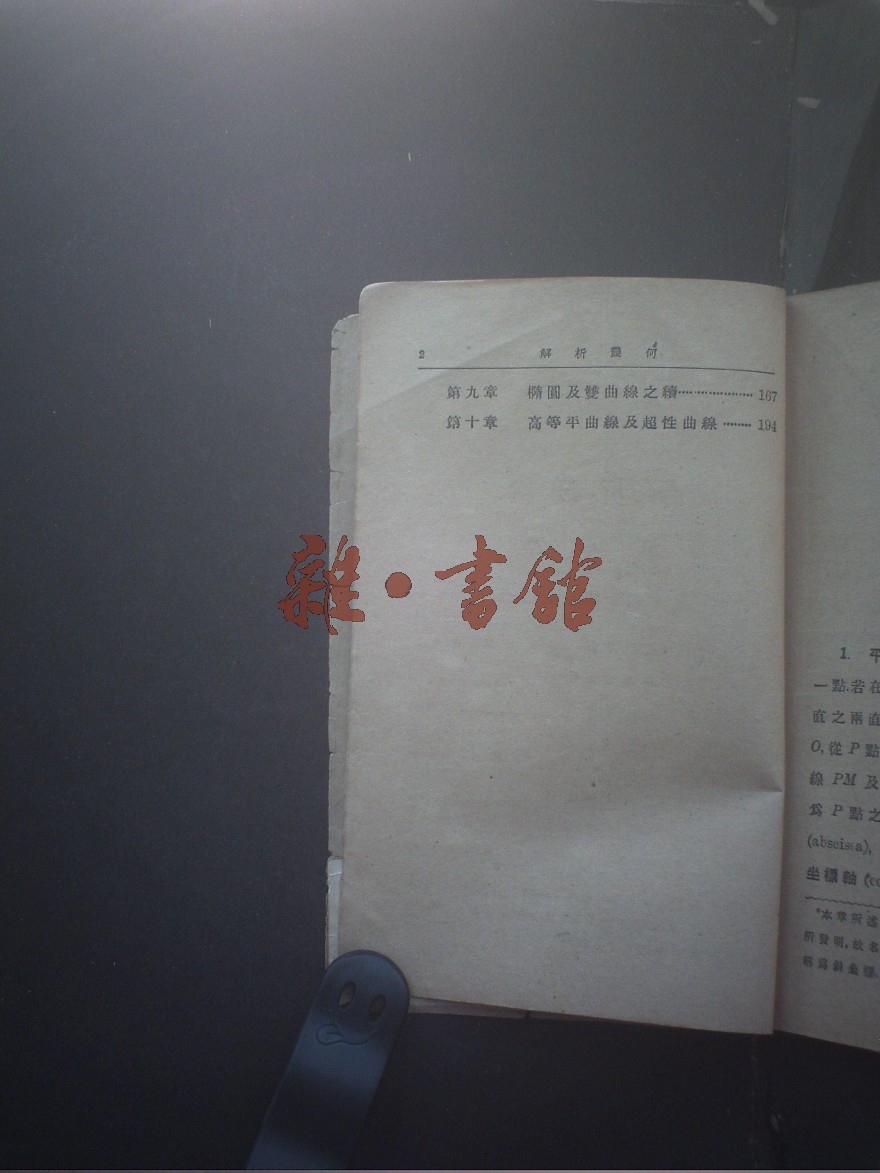 2 解析幾何
第九章 橢圓及雙曲線之續…………………167
第十章 高等平曲線及超性曲線………194
雜·書館
1. 平
一點.若在
直之兩直
O,從 P 點
線 PM 及
爲 P 點之
(abscissa),
坐標軸 (co
*本章所述
所發明,故名
稱爲斜坐標.